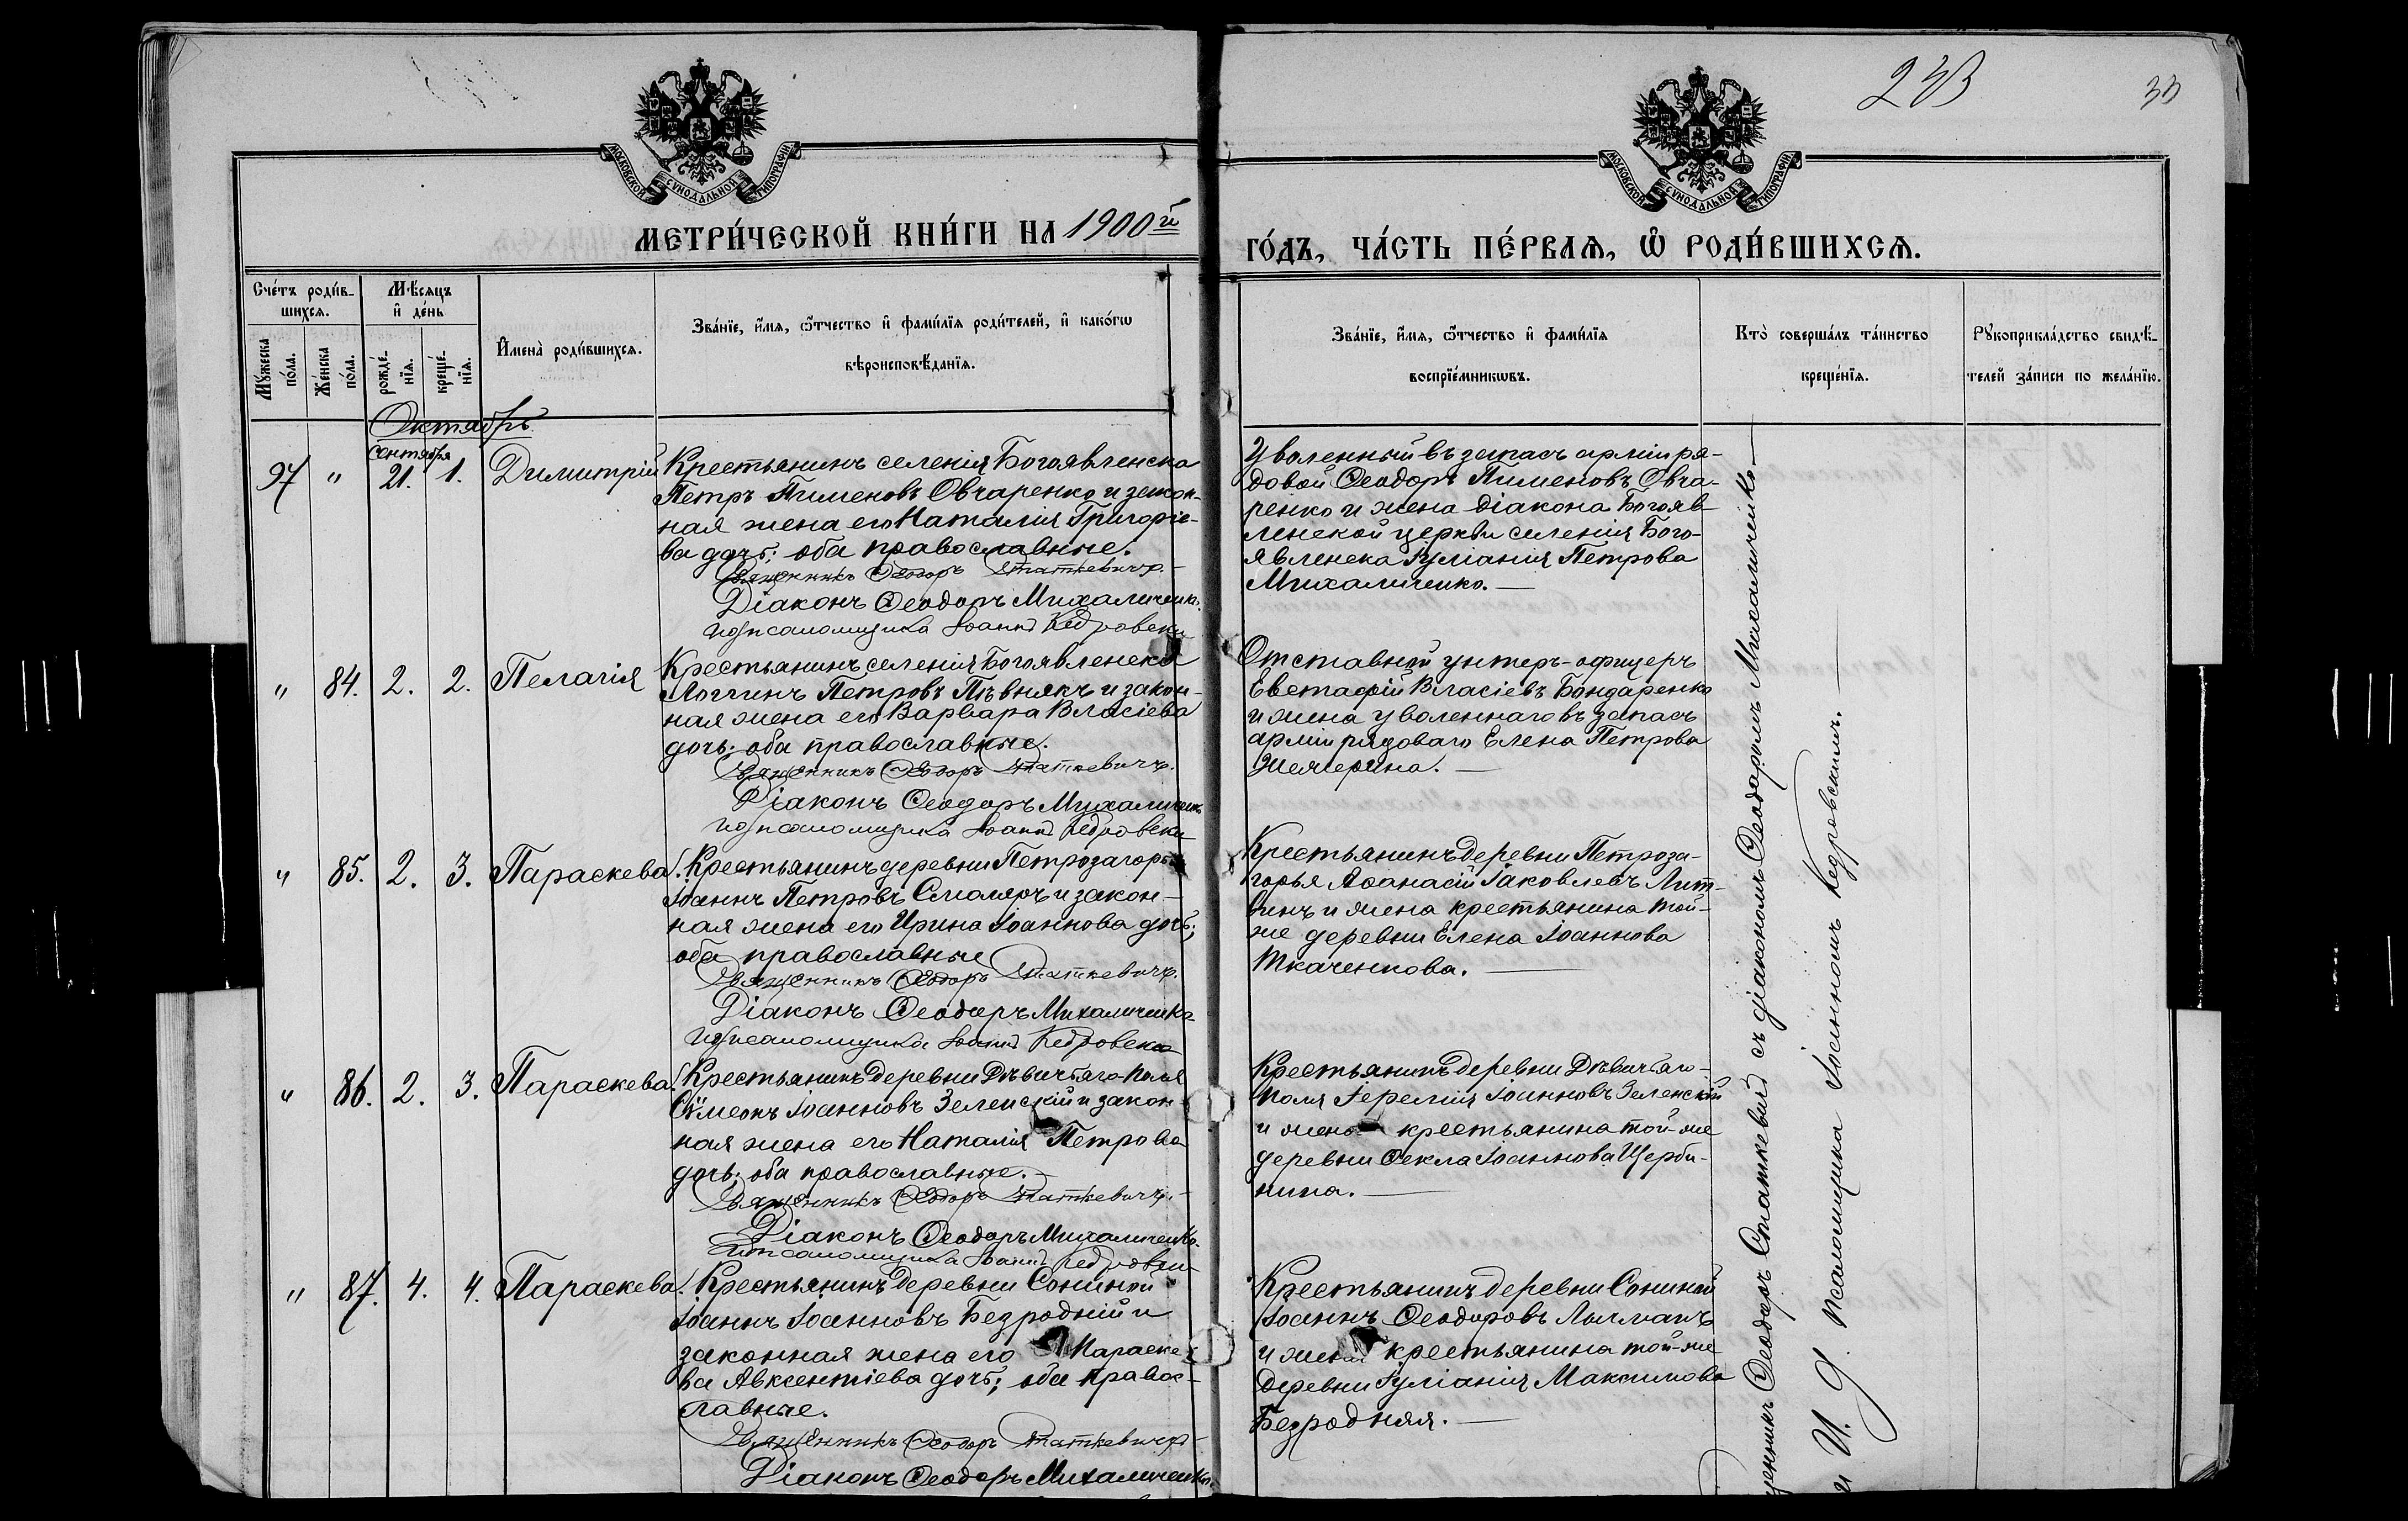 233
33
МОСКОВСКОЙ СѴНОДАЛЬНОЙ ТИПОГРАФІИ
МОСКОВСКОЙ СѴНОДАЛЬНОЙ ТИПОГРАФІИ
МЕТРИ́ЧЕСКОЙ КНИ́ГИ НА 1900й
ГО́ДЪ, ЧА́СТЬ ПЕ́РВАѦ, Ѡ҆ РОДИ́ВШИХСѦ.
Сче́тъ роди́в-
шихсѧ.
Мꙋ́жеска по́ла.
Же́нска по́ла.
Мѣ́сѧцъ
и҆ де́нь
рожде́-нїѧ.
креще́-нїѧ.
И҆мена̀ роди́вшихсѧ.
Зва́нїе, и҆́мѧ, ѻ҆́тчество и҆ фами́лїѧ роди́телей, и҆ како́гѡ
вѣроисповѣ́данїѧ.
Зва́нїе, и҆́мѧ, ѻ҆́тчество и҆ фами́лїѧ
воспрїе́мникѡвъ.
Кто̀ соверша́лъ та́инство
креще́нїѧ.
Рꙋкоприкла́дство свидѣ́-
телей за́писи по жела́нїю.
Октябрь
Сентября
97 " 21. 1. Димитрій
Крестьянинъ селенія Богоявленска
Петръ Пименовъ Овчаренко и закон-
ная жена его Наталія Григоріе-
ва дочь; оба православные.
Священникъ Ѳеодоръ Статкевичъ.
Діаконъ Ѳеодоръ Михаличенко.
И. д. псаломщика Іоаннъ Кедровскій
Уволенный въ запасъ арміи ря-
довой Ѳеодоръ Пименовъ Овча-
ренко и жена діакона Богояв-
ленской церкви селенія Бого-
явленска Іуліанія Петрова
Михаличенко.—
" 84. 2. 2. Пелагія
Крестьянинъ селенія Богоявленска
Логгинъ Петровъ Пѣвнякъ и закон-
ная жена его Варвара Власіева
дочь; оба православные.
Священникъ Ѳеодоръ Статкевичъ.
Діаконъ Ѳеодоръ Михаличенко
И. д. псаломщика Іоаннъ Кедровскій
Отставной унтеръ-офицеръ
Евстафій Власіевъ Бондаренко
и жена уволеннаго въ запасъ
арміи рядоваго Елена Петрова
" 85. 2. 3. Параскева.
Крестьянинъ деревни Петрозагорья
Іоаннъ Петровъ Смоляръ и закон-
ная жена его Ирина Іоаннова дочь;
оба православные
Священникъ Ѳеодоръ Статкевичъ.
Діаконъ Ѳеодоръ Михаличенко
И. д. псаломщика Іоаннъ Кедровскій
Крестьянинъ деревни Петроза-
горья Аѳанасій Іаковлевъ Лит-
винъ и жена крестьянина той-
же деревни Елена Іоаннова
Ткаченкова.—
" 86. 2. 3. Параскева.
Крестьянинъ деревни Дѣвичьяго-Поля
Сѷмеонъ Іоанновъ Зеленскій и закон-
ная жена его Наталія Петрова
дочь; оба православные.—
Священникъ Ѳеодоръ Статкевичъ.—
Діаконъ Ѳеодоръ Михаличенко.
И. д. псаломщика Іоаннъ Кедровскій
Крестьянинъ деревни Дѣвичьяго-
Поля Іеремія Іоанновъ Зеленскій
и жена крестьянина той-же
деревни Ѳекла Іоаннова Щерби-
нина.—
" 87. 4. 4. Параскева.
Крестьянинъ деревни Сониной
Іоаннъ Іоанновъ Безродній и
законная жена его Параске-
ва Авксентіева дочь; оба правос-
лавные.
Священникъ Ѳеодоръ Статкевичъ
Діаконъ Ѳеодоръ Михаличенко.
Крестьянинъ деревни Сониной
Іоаннъ Ѳеодоровъ
и жена крестьянина той-же
деревни Іуліанія Максимова
Безродняя.—
Священникъ Ѳеодоръ Статкевичъ съ діакономъ Ѳеодоромъ Михаличенко—
и И. д. псаломщика Іоанномъ Кедровскимъ.—